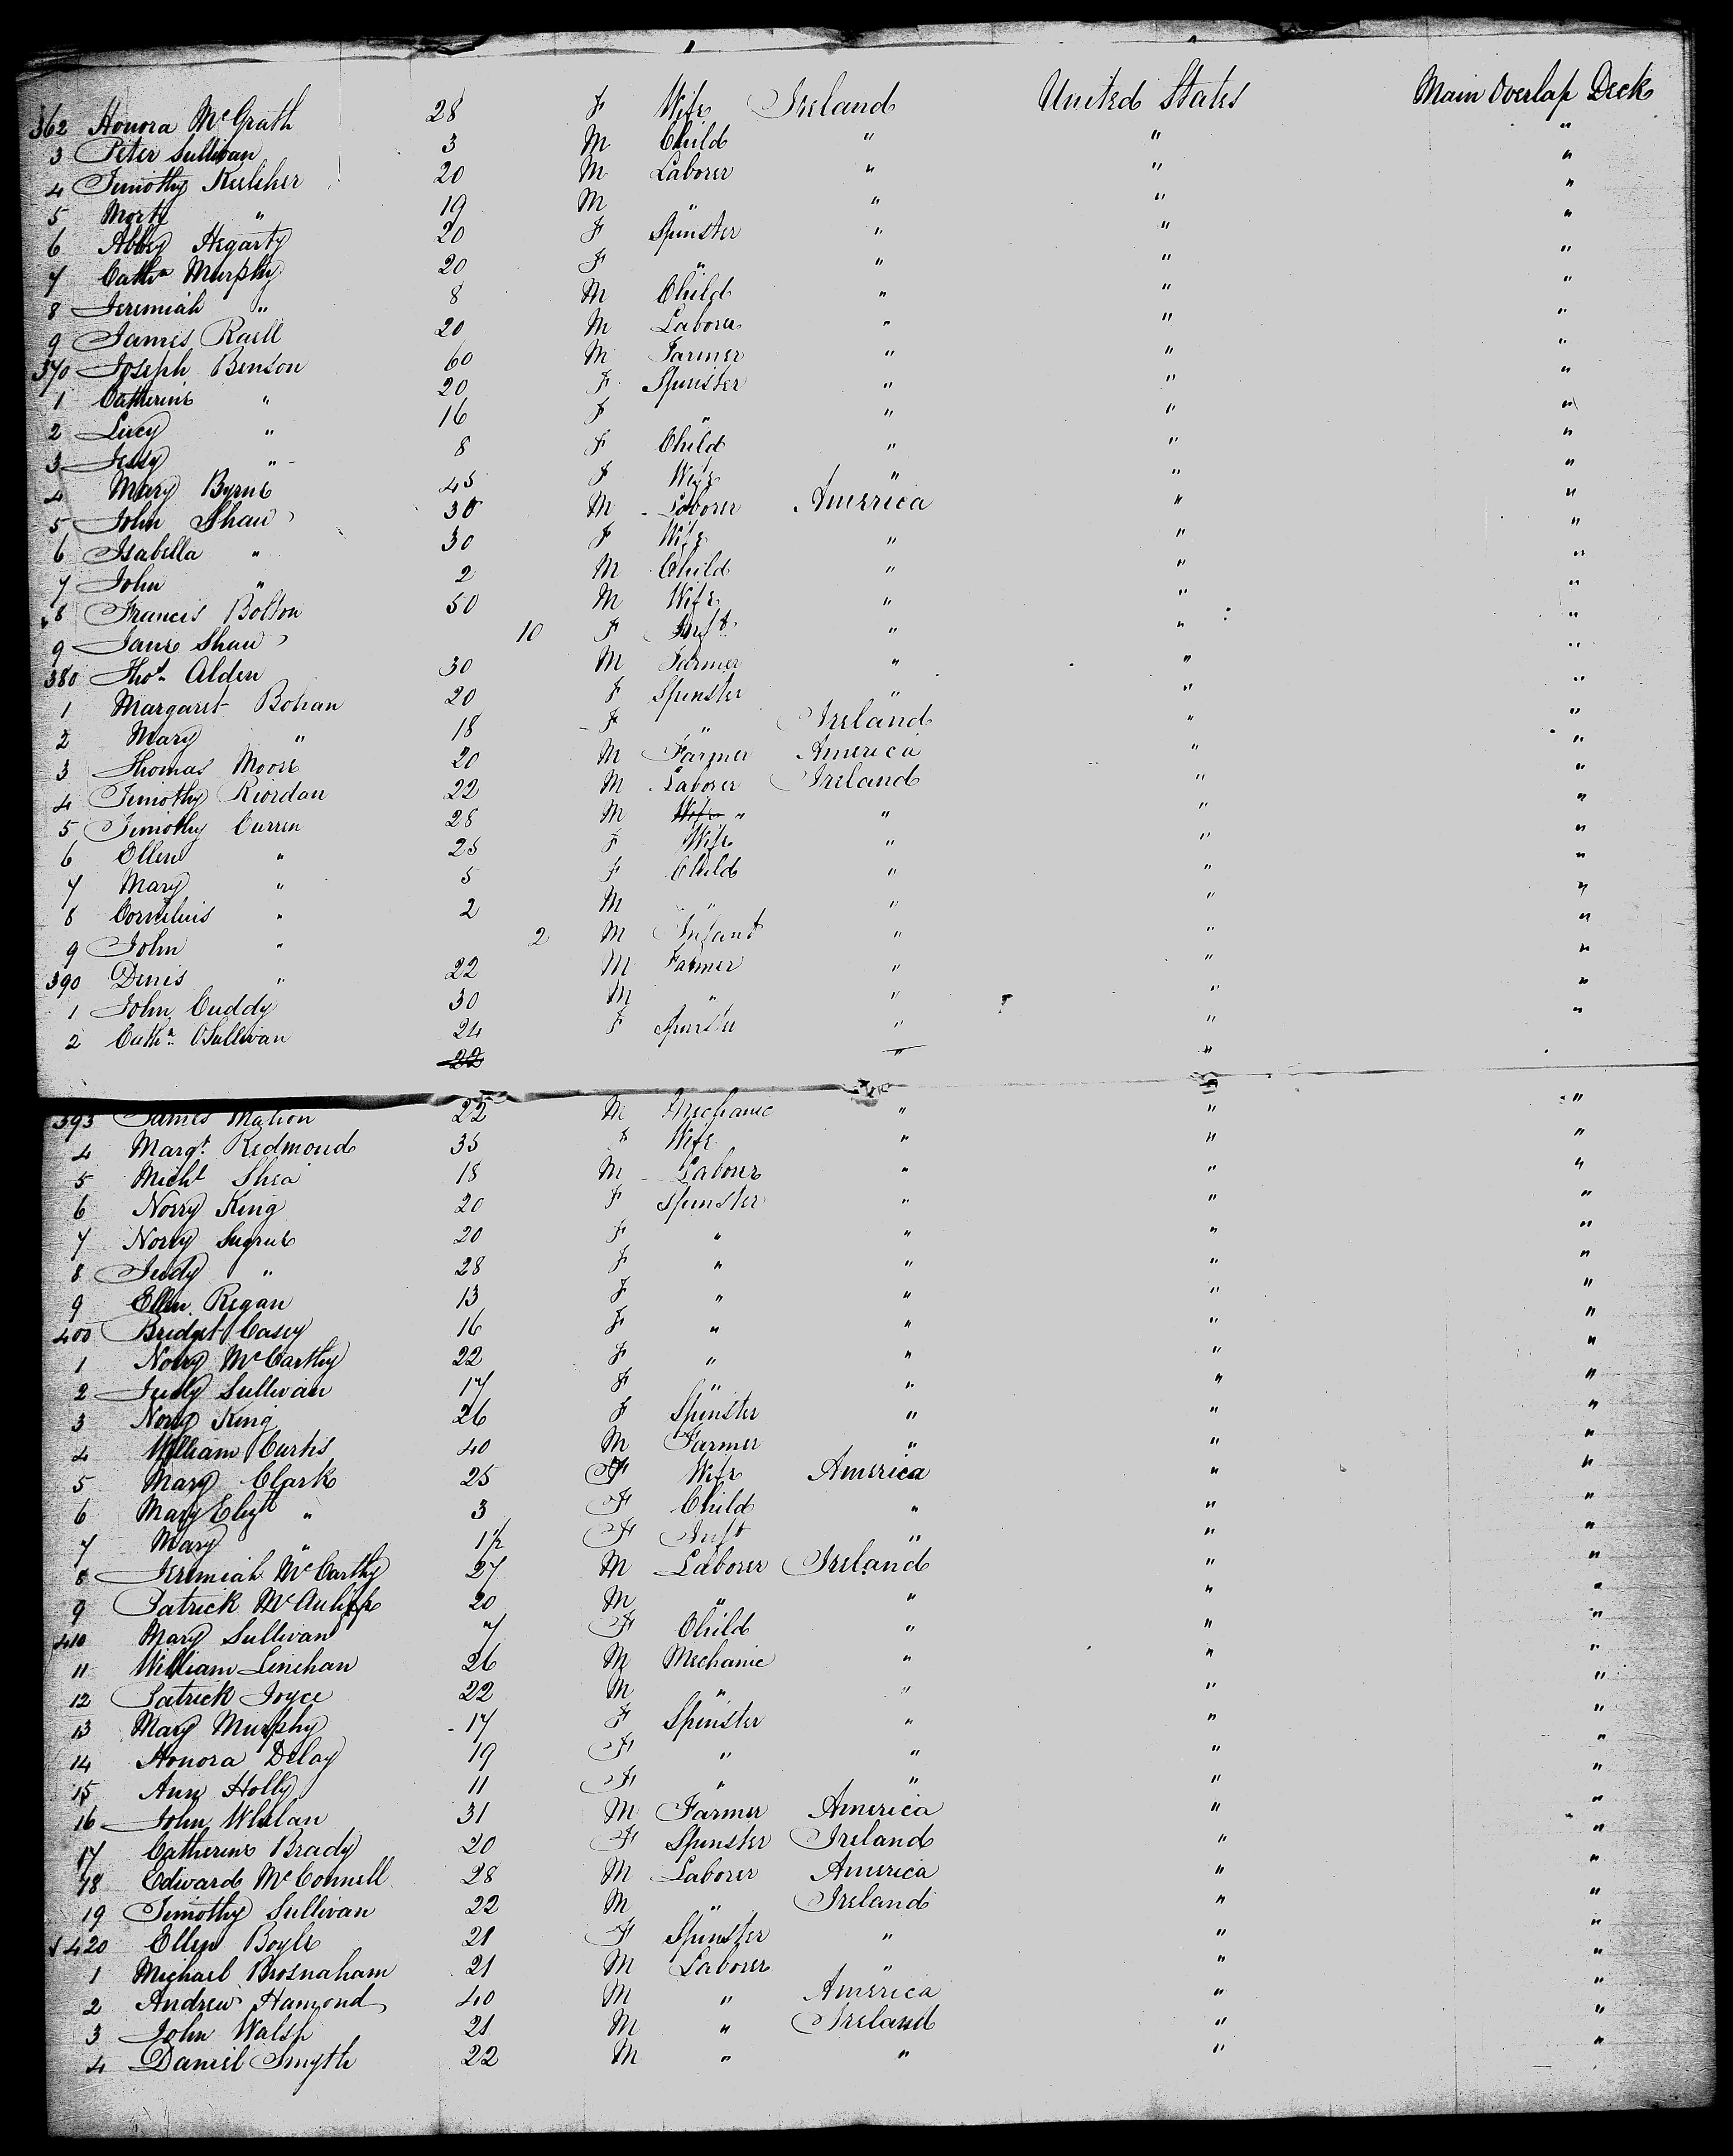 362 Honora McGrath 28 F Wife Ireland United States Main Overlap Deck
3 Peter Sullivan 3 M Child " " "
4 Timothy Kelleher 20 M Laborer " " "
5 Morty " 19 M " " " "
6 Abbey Hegarty 20 F Spinster " " "
7 Cathn Murphy 20 F " " " "
8 Jeremiah " 8 M Child " " "
9 James Raell 20 M Laborer " " "
370 Joseph Benson 60 M Farmer " " "
1 Catherine " 20 F Spinster " " "
2 Lucy " 16 F " " " "
3 Jessy " 8 F Child " " "
4 Mary Byrne 45 F Wife " " "
5 John Shaw 30 M Laborer America " "
6 Isabella " 30 F Wife " " "
7 John " 2 M Child " " "
8 Francis Bolton 50 M Wife " " "
9 Jane Shaw 10 F Inft " " "
380 Thos Alden 30 M Farmer " " "
1 Margaret Bohan 20 F Spinster " " "
2 Mary " 18 F " Ireland " "
3 Thomas Moore 20 M Farmer America " "
4 Timothy Riordan 22 M Laborer Ireland " "
5 Timothy Curren 28 M Wife " " " "
6 Ellen " 25 F Wife " " "
7 Mary " 5 F Child " " "
8 Cornelius " 2 M " " " "
9 John " 2 M Infant " " "
390 Denis " 22 M Farmer " " "
1 John Cuddy 30 M " " " "
2 Cathn O'Sullivan 24 F Spinster " " "
22 " "
393 James Mahon 22 M Mechanic " " "
4 Margt Redmond 35 F Wife " " "
5 Michl Shea 18 M Laborer " " "
6 Norry King 20 F Spinster " " "
7 Norry Sugrue 20 F " " " "
8 Judy " 28 F " " " "
9 Ellen Regan 13 F " " " "
400 Bridget Casey 16 F " " " "
1 Norry McCarthy 22 F " " " "
2 Judy Sullivan 17 F " " " "
3 Norry King 26 F Spinster " " "
4 William Curtis 40 M Farmer " " "
5 Mary Clark 25 F Wife America " "
6 Mary Elizth " 3 F Child " " "
7 Mary " 1½ F Inft " " "
8 Jeremiah McCarthy 27 M Laborer Ireland " "
9 Patrick McAuliffe 20 M " " " "
410 Mary Sullivan 7 F Child " " "
11 William Linehan 26 M Mechanic " " "
12 Patrick Joyce 22 M " " " "
13 Mary Murphy 17 F Spinster " " "
14 Honora Delay 19 F " " " "
15 Ann Holly 11 F " " " "
16 John Whelan 31 M Farmer America " "
17 Catherine Brady 20 F Spinster Ireland " "
18 Edward McConnell 28 M Laborer America " "
19 Timothy Sullivan 22 M " Ireland " "
420 Ellen Boyle 21 F Spinster " " "
1 Michael Brosnaham 21 M Laborer " " "
2 Andrew Hamond 40 M " America " "
3 John Walsh 21 M " Ireland " "
4 Daniel Smyth 22 M " " " "